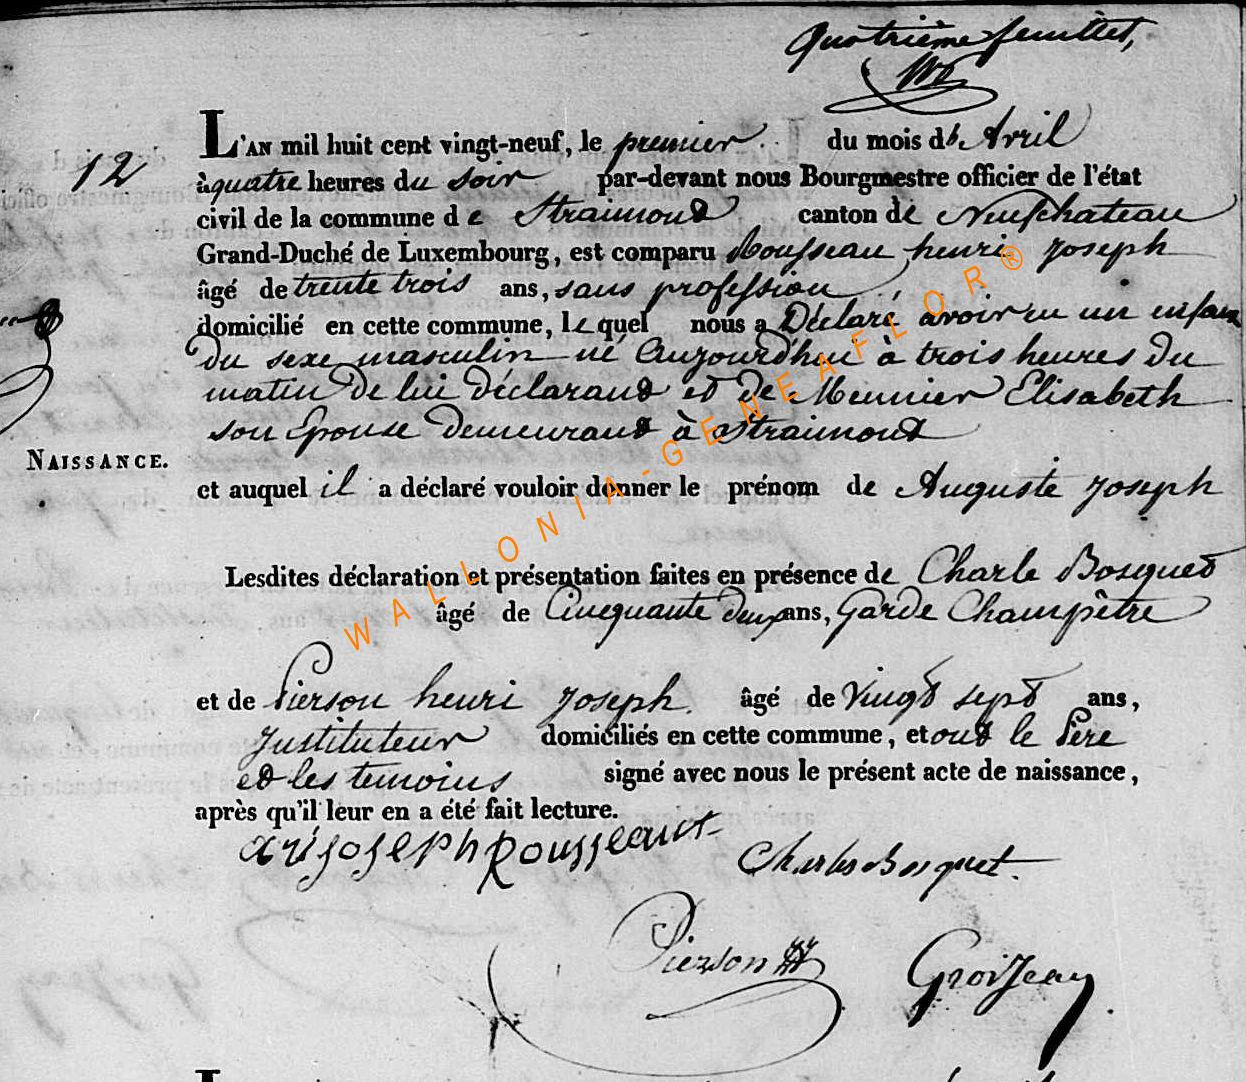 Quatrième feuillet,
12
L'AN mil huit cent vingt-neuf, le premier du mois d'Avril
à quatre heures du soir par-devant nous Bourgmestre officier de l'état
civil de la commune de Straimond canton de Neufchateau
Grand-Duché de Luxembourg, est comparu Rousseau henri Joseph
âgé de trente trois ans, sans profession
domicilié en cette commune, lequel nous a Déclaré avoir eu un enfant
Du sexe masculin né Aujourd'hui à trois heures Du
matin De lui déclarand et De Meunier Elisabeth
son Epouse Demeurand à Straimont
NAISSANCE.
et auquel il a déclaré vouloir donner le prénom de Auguste Joseph
Lesdites déclaration et présentation faites en présence de Charle Bosqued
âgé de Cinquante deux ans, Garde Champêtre
et de Pierson henri Joseph. âgé de Vingt sept ans,
Instituteur domiciliés en cette commune, et ont le Père
et les temoins signé avec nous le présent acte de naissance,
après qu'il leur en a été fait lecture.
arijoseph Rousseaux
Charles Bosquet.
Pierson
GroisJean
WALLONIA-GENEAFLOR®